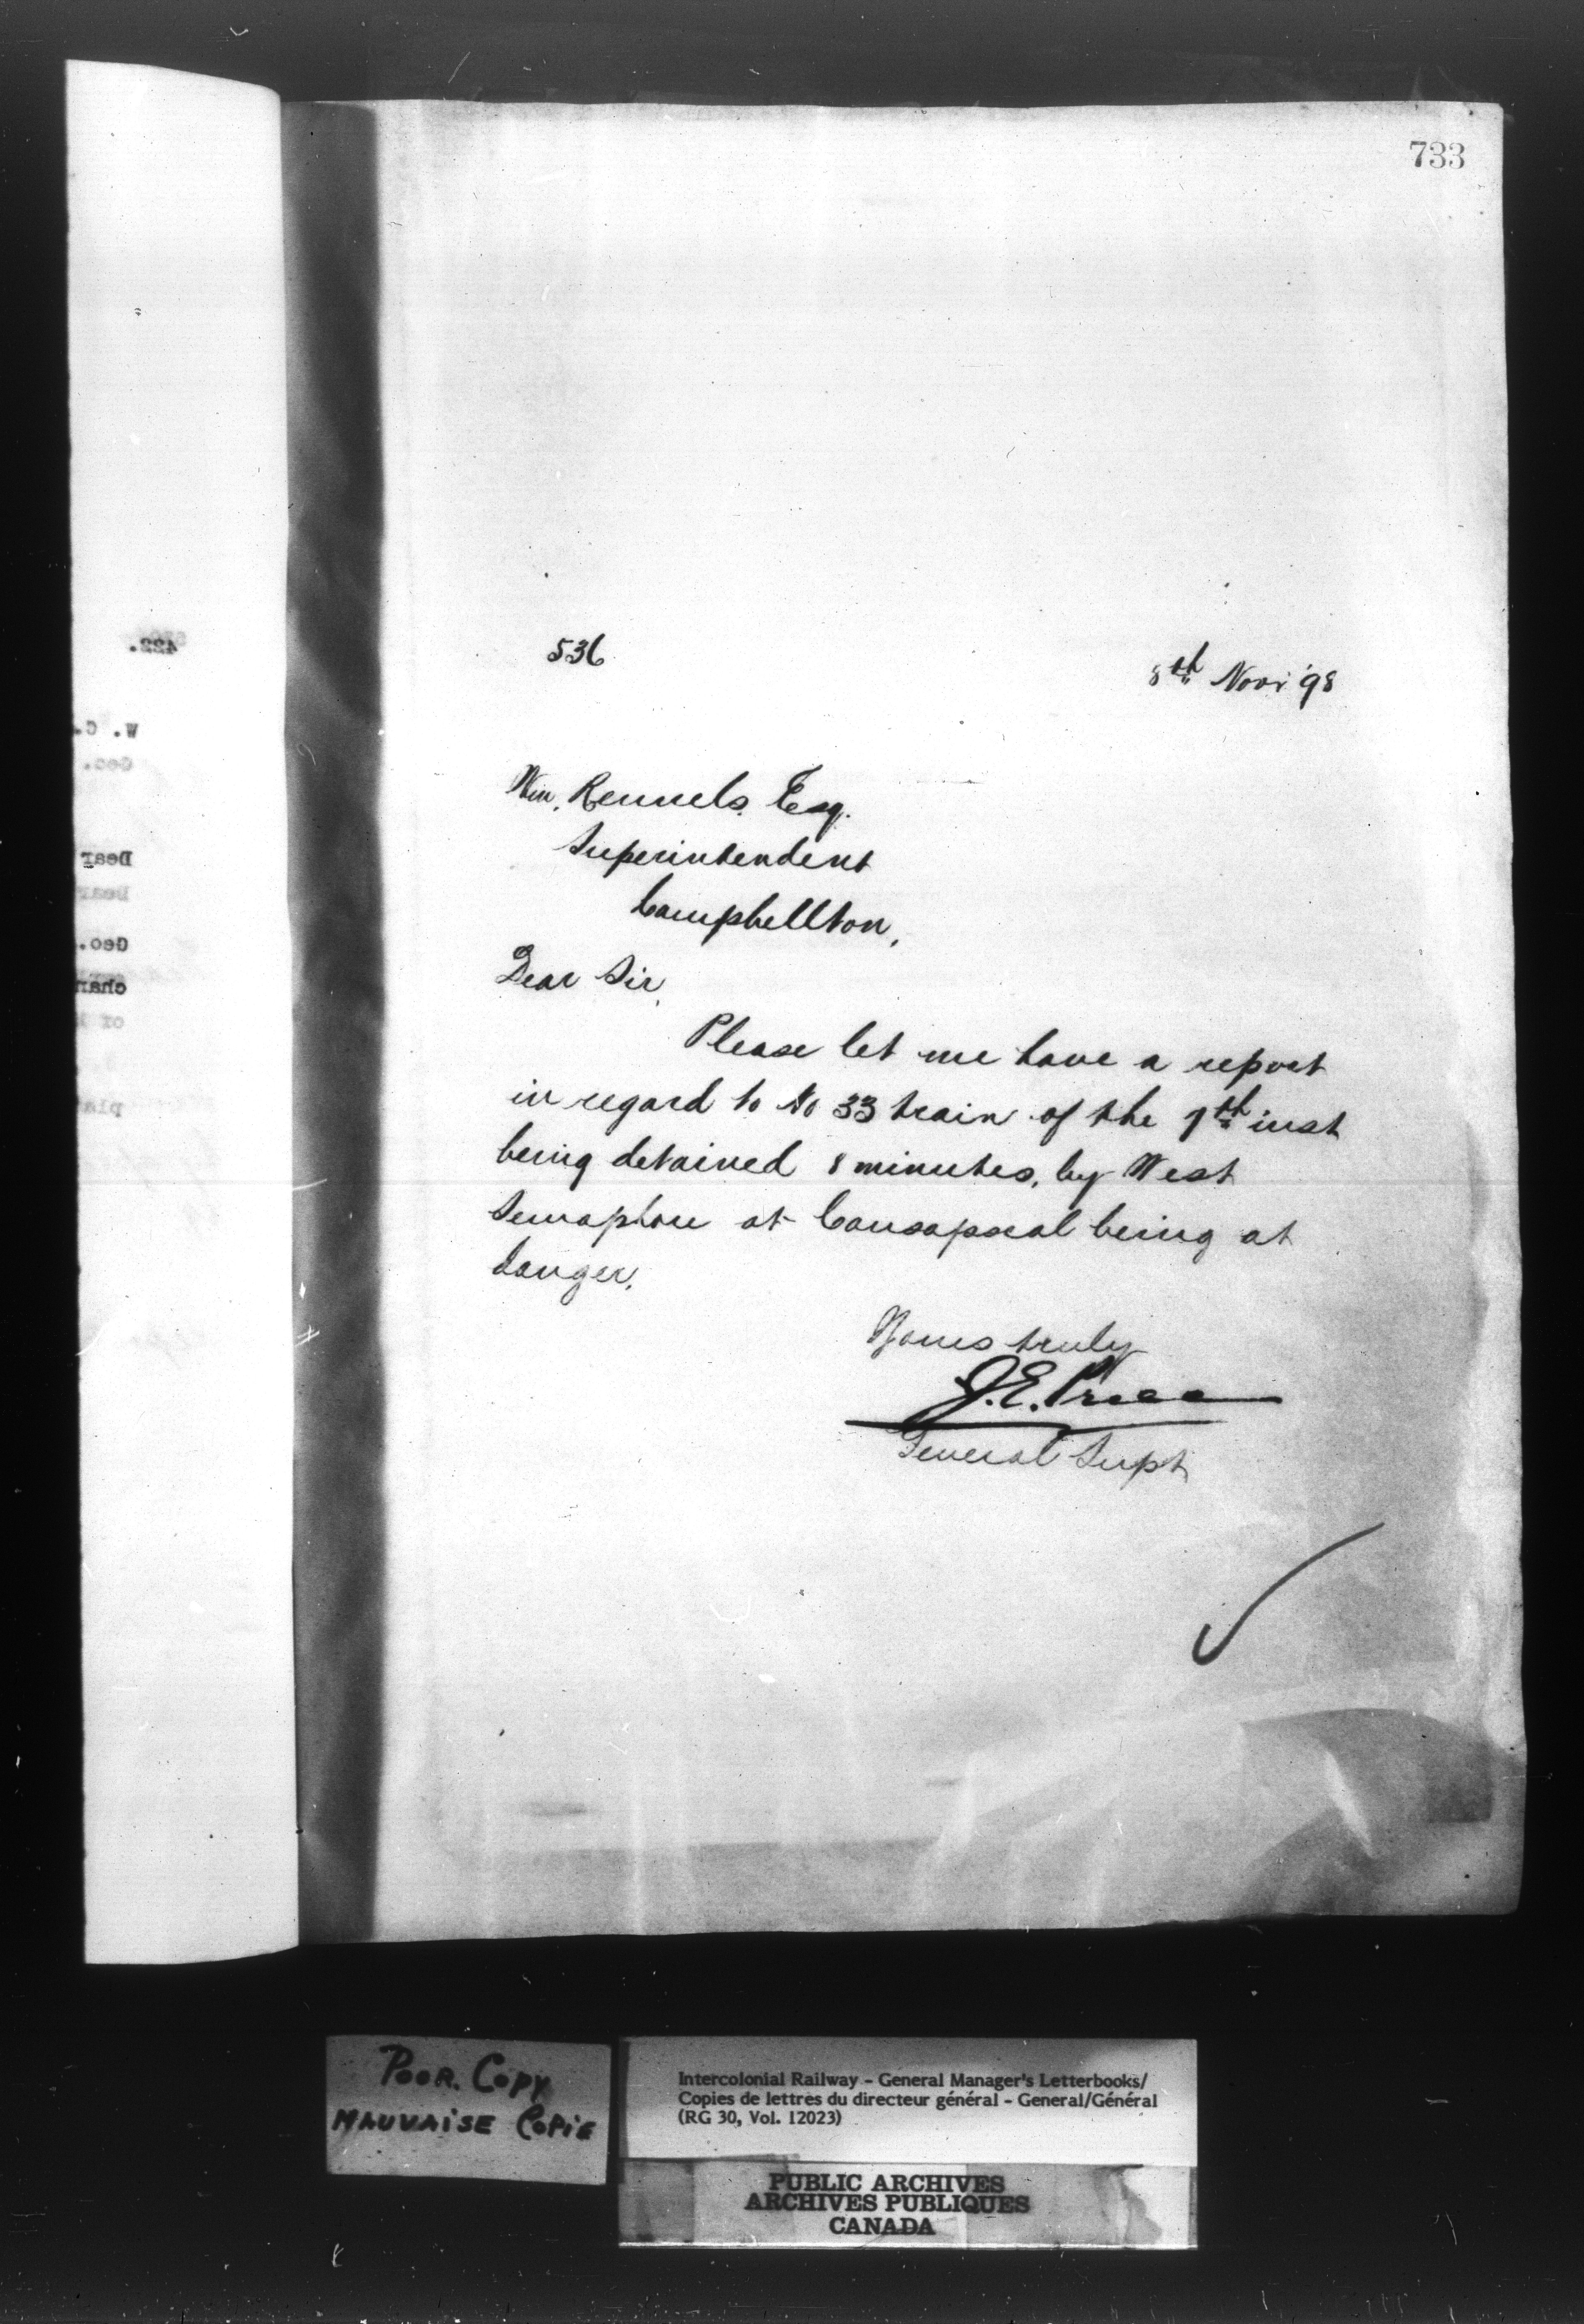 733
536
8th Novr '98
Wm. Rennels. Esq.
Superintendent
Campbellton,
Dear Sir,
Please let me have a report
in regard to No 33 train of the 7th inst
being detained 8 minutes, by West
Semaphore at Causapscal being at
danger.
Yours truly
J.E. Price
General Supt
422.
W. C.
Geo.
Dear
Dear
Geo.
chan
of
plat
POOR. COPY
MAUVAISE COPIE
Intercolonial Railway - General Manager's Letterbooks/
Copies de lettres du directeur général - General/Général
(RG 30, Vol. 12023)
PUBLIC ARCHIVES
ARCHIVES PUBLIQUES
CANADA